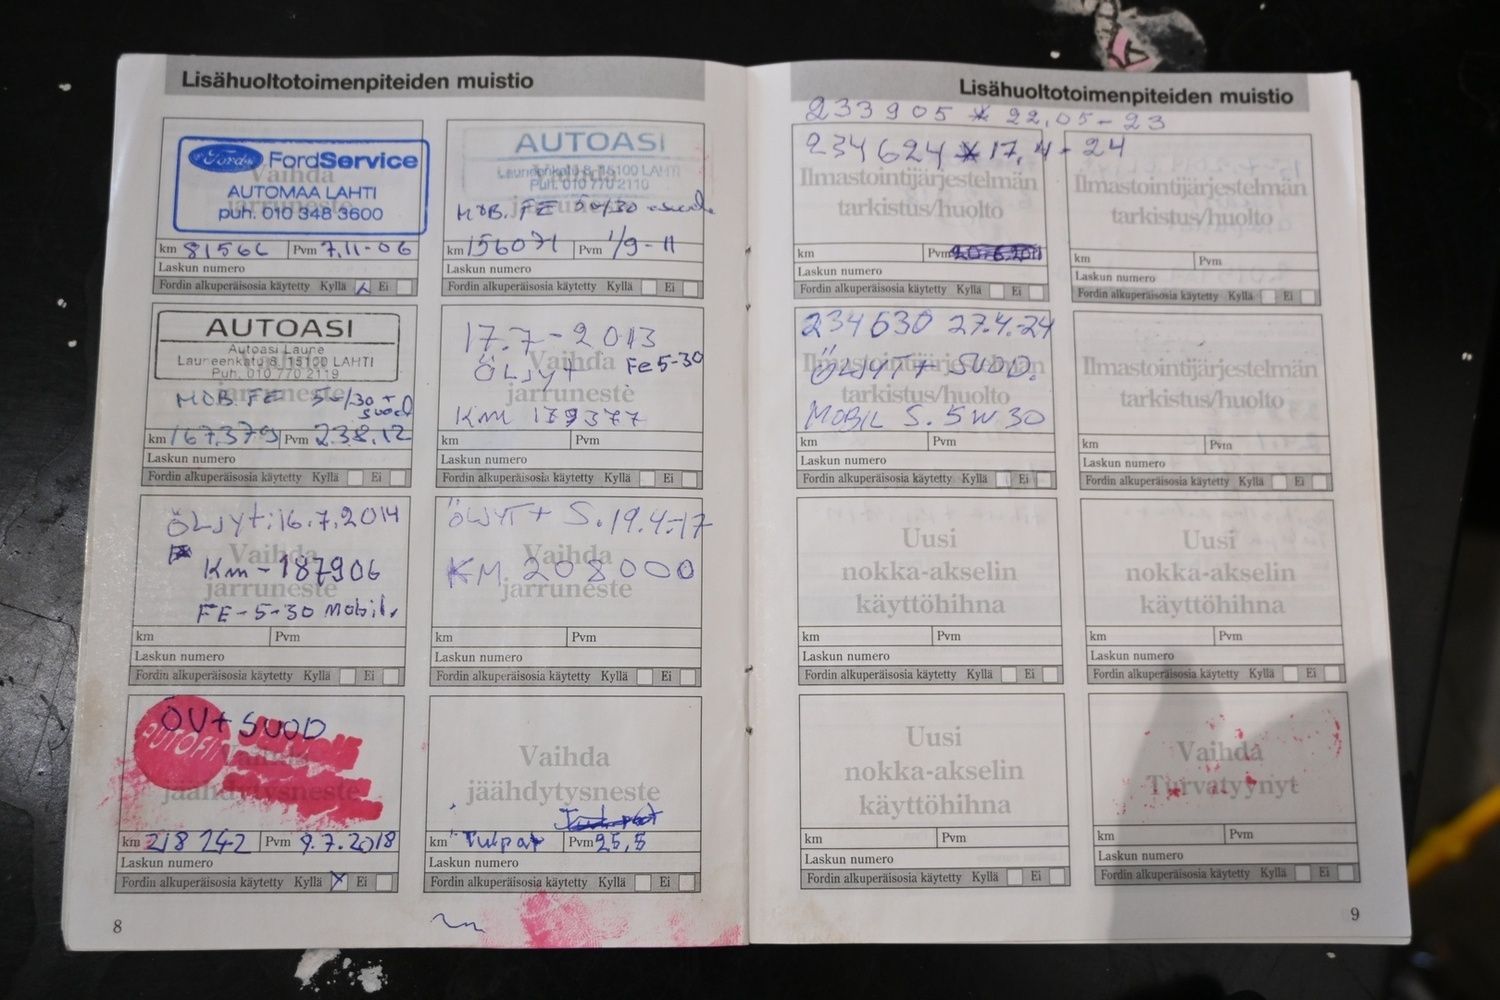 Lisähuoltotoimenpiteiden muistio
Ford FordService
AUTOMAA LAHTI
puh. 010 348 3600
Vaihda
jarruneste
km 81566 Pvm 7,11-06
Laskun numero
Fordin alkuperäisosia käytetty Kyllä Ei
AUTOASI
Launeenkatu 8, 15100 LAHTI
Puh. 010 770 2110
Vaihda
jarruneste
MOB. FE 5w/30
km 156071 Pvm 1/9-11
Laskun numero
Fordin alkuperäisosia käytetty Kyllä Ei
AUTOASI
Autoasi Laune
Launeenkatu 8, 15100 LAHTI
Puh. 010 770 2119
Vaihda
jarruneste
MOB. FE 5w/30 +
suod
km 167.379 Pvm 23.8.12
Laskun numero
Fordin alkuperäisosia käytetty Kyllä Ei
17.7-2013
Vaihda
ÖLJYT Fe 5-30
jarruneste
Km 179377
km Pvm
Laskun numero
Fordin alkuperäisosia käytetty Kyllä Ei
ÖLJYT: 16.7.2014
Vaihda
Km - 187906
jarruneste
FE-5-30 Mobil.
km Pvm
Laskun numero
Fordin alkuperäisosia käytetty Kyllä Ei
ÖLJYT + S. 19.4-17
Vaihda
KM 208000
jarruneste
km Pvm
Laskun numero
Fordin alkuperäisosia käytetty Kyllä Ei
ÖV+ SUOD
AUTOFIT
Vaihda
jäähdytysneste
km 218242 Pvm 9.7.2018
Laskun numero
Fordin alkuperäisosia käytetty Kyllä Ei
Vaihda
jäähdytysneste
km Tulpat Pvm 25,5
Laskun numero
Fordin alkuperäisosia käytetty Kyllä Ei
8
Lisähuoltotoimenpiteiden muistio
233905 * 22,05-23
234624 * 17,4-24
Ilmastointijärjestelmän
tarkistus/huolto
km Pvm
Laskun numero
Fordin alkuperäisosia käytetty Kyllä Ei
Ilmastointijärjestelmän
tarkistus/huolto
km Pvm
Laskun numero
Fordin alkuperäisosia käytetty Kyllä Ei
234630 27.4.-24
Ilmastointijärjestelmän
ÖLJYT + SUOD.
tarkistus/huolto
MOBIL S. 5W30
km Pvm
Laskun numero
Fordin alkuperäisosia käytetty Kyllä Ei
Ilmastointijärjestelmän
tarkistus/huolto
km Pvm
Laskun numero
Fordin alkuperäisosia käytetty Kyllä Ei
Uusi
nokka-akselin
käyttöhihna
km Pvm
Laskun numero
Fordin alkuperäisosia käytetty Kyllä Ei
Uusi
nokka-akselin
käyttöhihna
km Pvm
Laskun numero
Fordin alkuperäisosia käytetty Kyllä Ei
Uusi
nokka-akselin
käyttöhihna
km Pvm
Laskun numero
Fordin alkuperäisosia käytetty Kyllä Ei
Vaihda
Turvatyynyt
km Pvm
Laskun numero
Fordin alkuperäisosia käytetty Kyllä Ei
9